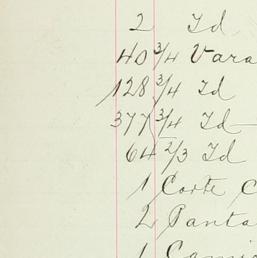 2 Id
40 3/4 Vara
128 3/4 Id
377 3/4 Id
64 2/3 Id
1 Corte C
2 Panta
1 Cami